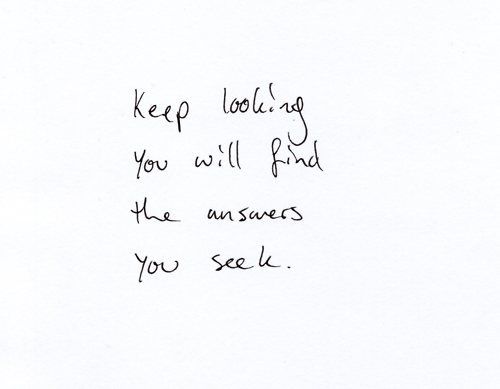 Keep looking
You will find
the answers
You seek.